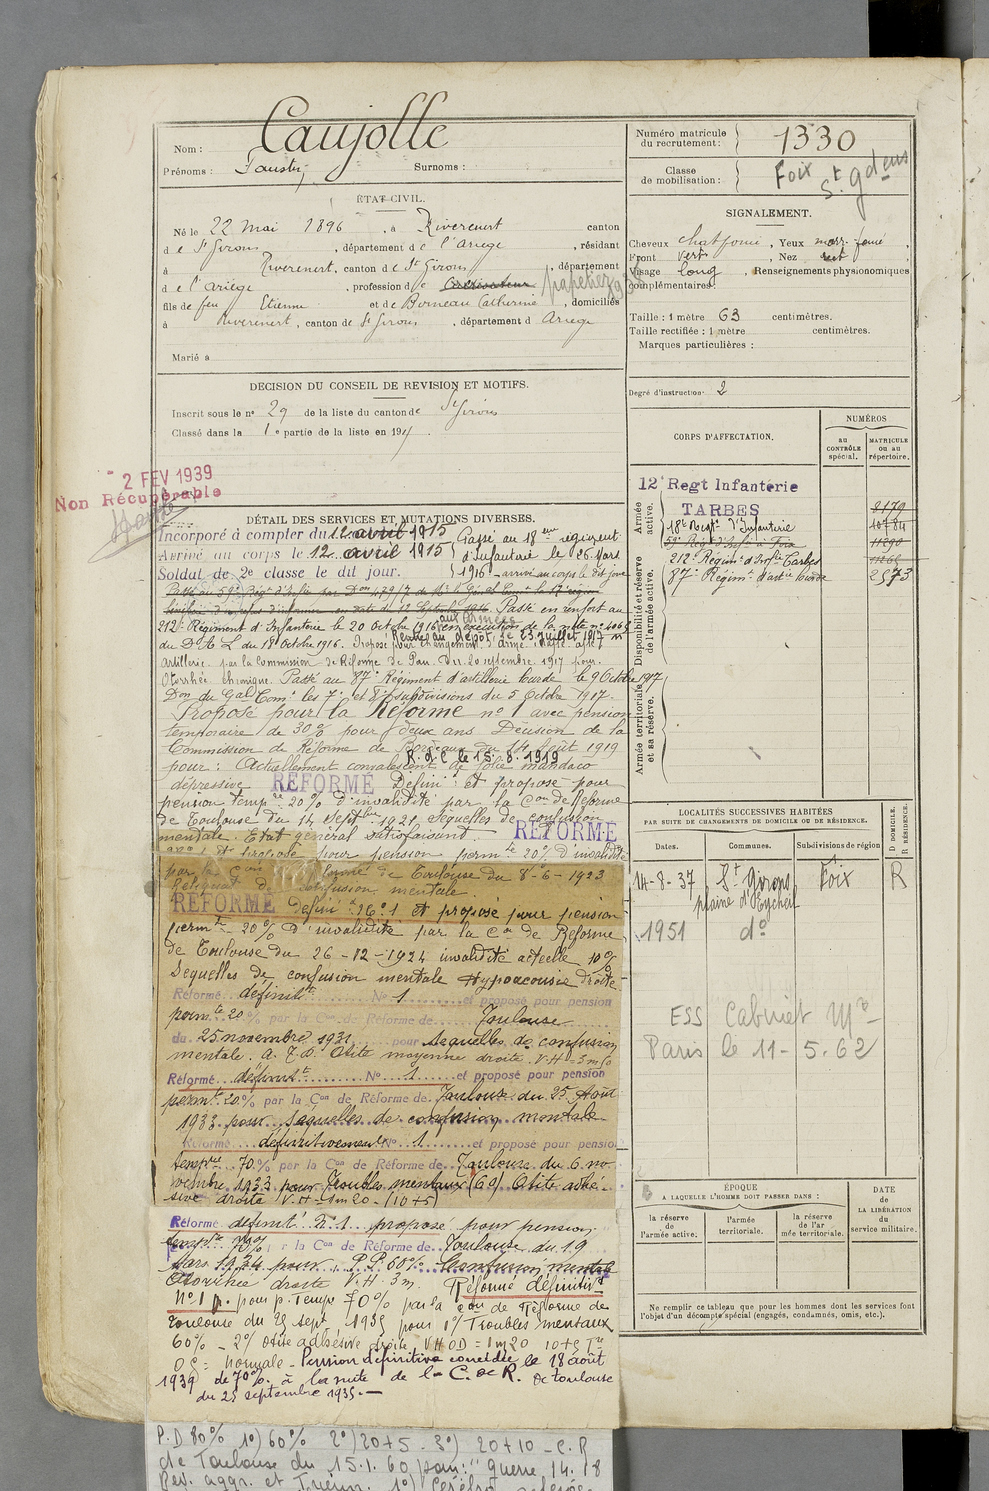 Nom : Caujolle
Prénoms : Faustin, Surnoms :
ÉTAT CIVIL.
Né le 22 Mai 1896, à Rivèrenert canton
de St Girons, département de l'Ariège, résidant
à Rivèrenert, canton de St Girons, département
de l'Ariège, profession de Cultivateur papetier
fils de feu Etienne et de Borneau Catherine, domiciliés
à Rivèrenert, canton de St Girons, département d Ariège
Marié à
DÉCISION DU CONSEIL DE REVISION ET MOTIFS.
Inscrit sous le n° 29 de la liste du canton de St Girons
Classé dans la 1e partie de la liste en 191
- 2 FEV 1939
Non Récupérable
DÉTAIL DES SERVICES ET MUTATIONS DIVERSES.
Incorporé à compter du 12 avril 1915
Arrivé au corps le 12 avril 1915
Soldat de 2e classe le dit jour.
Passé au 18eme régiment
d'Infanterie le 26 Mars
1916 - arrivé au corps le dit jour
Passé en renfort au
212e Régiment d'Infanterie le 20 Octobre 1916 en exécution de la note n° 4065
aux armées
du D.A.L du 18 Octobre 1916. Proposé pour changement d'arme inapte apte
Rentré au dépôt, le 23 juillet 1917
artillerie par la Commission de Réforme de Pau du 20 septembre 1917 pour
Otorrhée chronique. Passé au 87e Régiment d'artillerie lourde le 9 Octobre 1917
Don du Gal Comt les 7e et 8e subdivisions du 5 Octobre 1917.
Proposé pour la Réforme n° 1 avec pension
temporaire de 30% pour deux ans Décision de la
Commission de Réforme de Bordeaux du 14 Août 1919
R.d.C le 15.8.1919
pour : Actuellement convalescent de folie maniaco
dépressive RÉFORMÉ Définif et proposé pour
pension tempre 20% d'invalidité par la Con de Réforme
de Toulouse du 14 Septbre 1921, Sequelles de confusion
mentale. Etat général satisfaisant - RÉFORMÉ
pour pension permte 20% d'invalidité
par la Con Réforme de Toulouse du 8-6-1923
Reliquat de confusion mentale.
RÉFORMÉ défini n° 1 et proposé pour pension
permte 20% d'invalidité par la Con de Réforme
de Toulouse du 26-12-1924 invalidité actuelle 10%
Sequelles de confusion mentale Hypoacousie droite.
Réformé définitt N° 1 et proposé pour pension
permte 20% par la Con de Réforme de Toulouse
du 25 novembre 1931 pour Sequelles de confusion
mentale. Otite moyenne droite. V.H = 3m50
Réformé définitt N° 1 et proposé pour pension
permte 20% par la Con de Réforme de Toulouse du 25 Août
1933 pour Sequelles de confusion mentale
Réformé définitivement N° 1 et proposé pour pension
tempre 70% par la Con de Réforme de Toulouse du 6 no-
vembre 1933 pour Troubles mentaux (60) Otite adhé-
sive droite V.H = 1m20 - (10+5)
Réformé définité n° 1 proposé pour pension
tempre 70% par la Con de Réforme de Toulouse du 19
mars 1934 pour P.P. 60% Confusion mentale
Otorrhée droite V.H. 3m. Réformé définitivt
N° 1 p. pour p. Temp 70% par la Con de Réforme de
Toulouse du 25 sept 1935 pour 1°/ Troubles mentaux
60% - 2°/ Otite adhésive droite VHOD = 1m20 10+5
OG = Normale - Pension définitive concédée le 18 août
1939 de 70% à la suite de la C. de R. de Toulouse
du 25 septembre 1935. -
P.D 80% 1°) 60% 2°) 20+5 - 3°) 20+10 - C.R
de Toulouse du 15.1.60 pour : "guerre 14.18
Numéro matricule
du recrutement : 1330
Classe
de mobilisation : Foix St Gdens
SIGNALEMENT.
Cheveux chat foncé, Yeux marr. foncé,
Front vert, Nez rect
Visage long, Renseignements physionomiques
complémentaires :
Taille : 1 mètre 63 centimètres.
Taille rectifiée : 1 mètre centimètres.
Marques particulières :
Degré d'instruction : 2
CORPS D'AFFECTATION.
NUMÉROS
au
CONTRÔLE
spécial.
MATRICULE
ou au
répertoire.
Armée
active.
12e Regt Infanterie
TARBES 8179
18e Regt d'Infanterie 10784
59e Régt d'Infie à Foix 11290
Disponibilité et réserve
de l'armée active.
212e Régimt d'Infie Tarbes
87e Régimt d'artie lourde 2573
Armée territoriale
et sa réserve.
LOCALITÉS SUCCESSIVES HABITÉES
PAR SUITE DE CHANGEMENTS DE DOMICILE OU DE RÉSIDENCE.
Dates. Communes. Subdivisions de région
D DOMICILE.
R RÉSIDENCE.
14-8-37 St Girons Foix R
plaine d'Eycheil
1951 do
ESS Cabinet Mre
Paris le 11-5.62
ÉPOQUE
A LAQUELLE L'HOMME DOIT PASSER DANS :
la réserve
de
l'armée active.
l'armée
territoriale.
la réserve
de l'ar
mée territoriale.
DATE
de
LA LIBÉRATION
du
service militaire.
Ne remplir ce tableau que pour les hommes dont les services font
l'objet d'un décompte spécial (engagés, condamnés, omis, etc.).